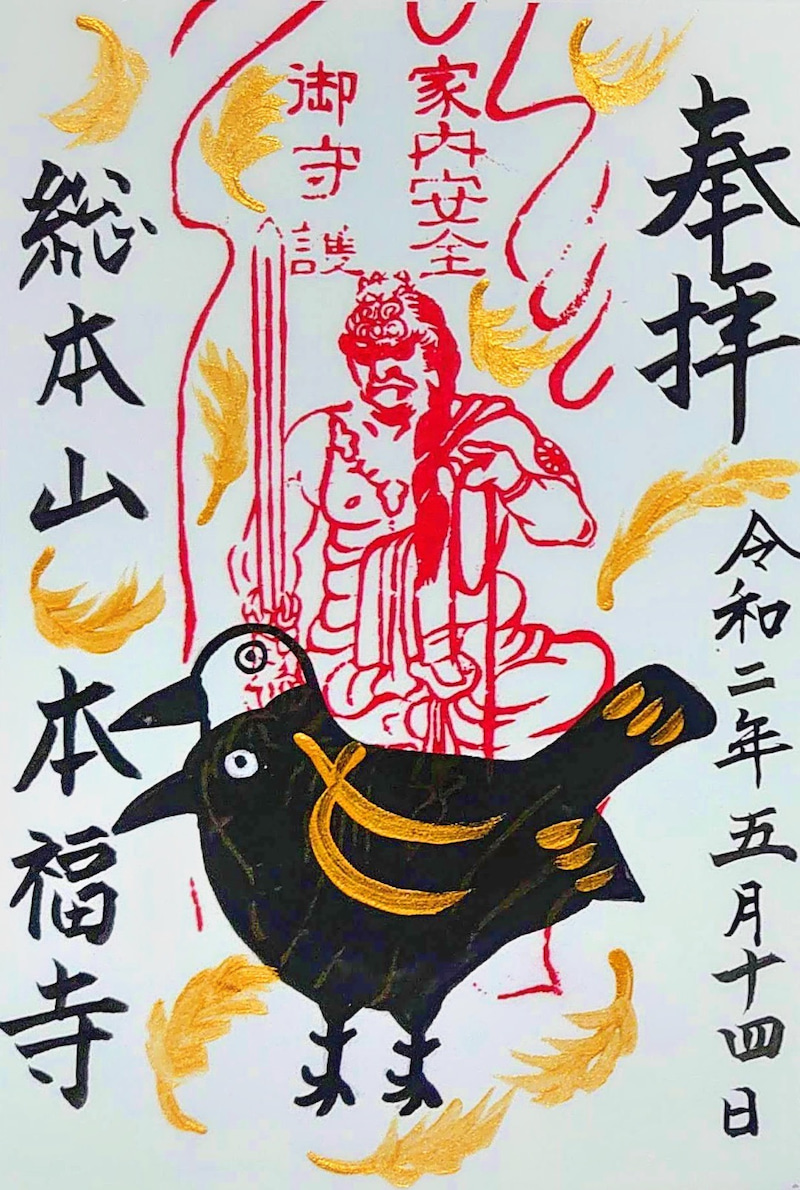 奉拝
令和二年五月十四日
家内安全
御守護
総本山
本福寺